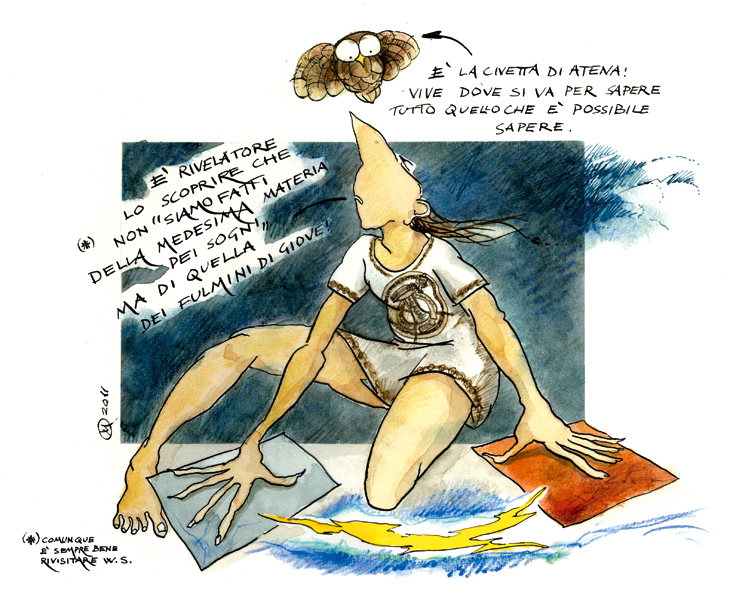 È LA CIVETTA DI ATENA!
VIVE DOVE SI VA PER SAPERE
TUTTO QUELLO CHE È POSSIBILE
SAPERE.
È RIVELATORE
LO SCOPRIRE CHE
NON "SIAMO FATTI
DELLA MEDESIMA MATERIA
DEI SOGNI"
MA DI QUELLA
DEI FULMINI DI GIOVE!
(*)
2011
(*) COMUNQUE
È SEMPRE BENE
RIVISITARE W.S.